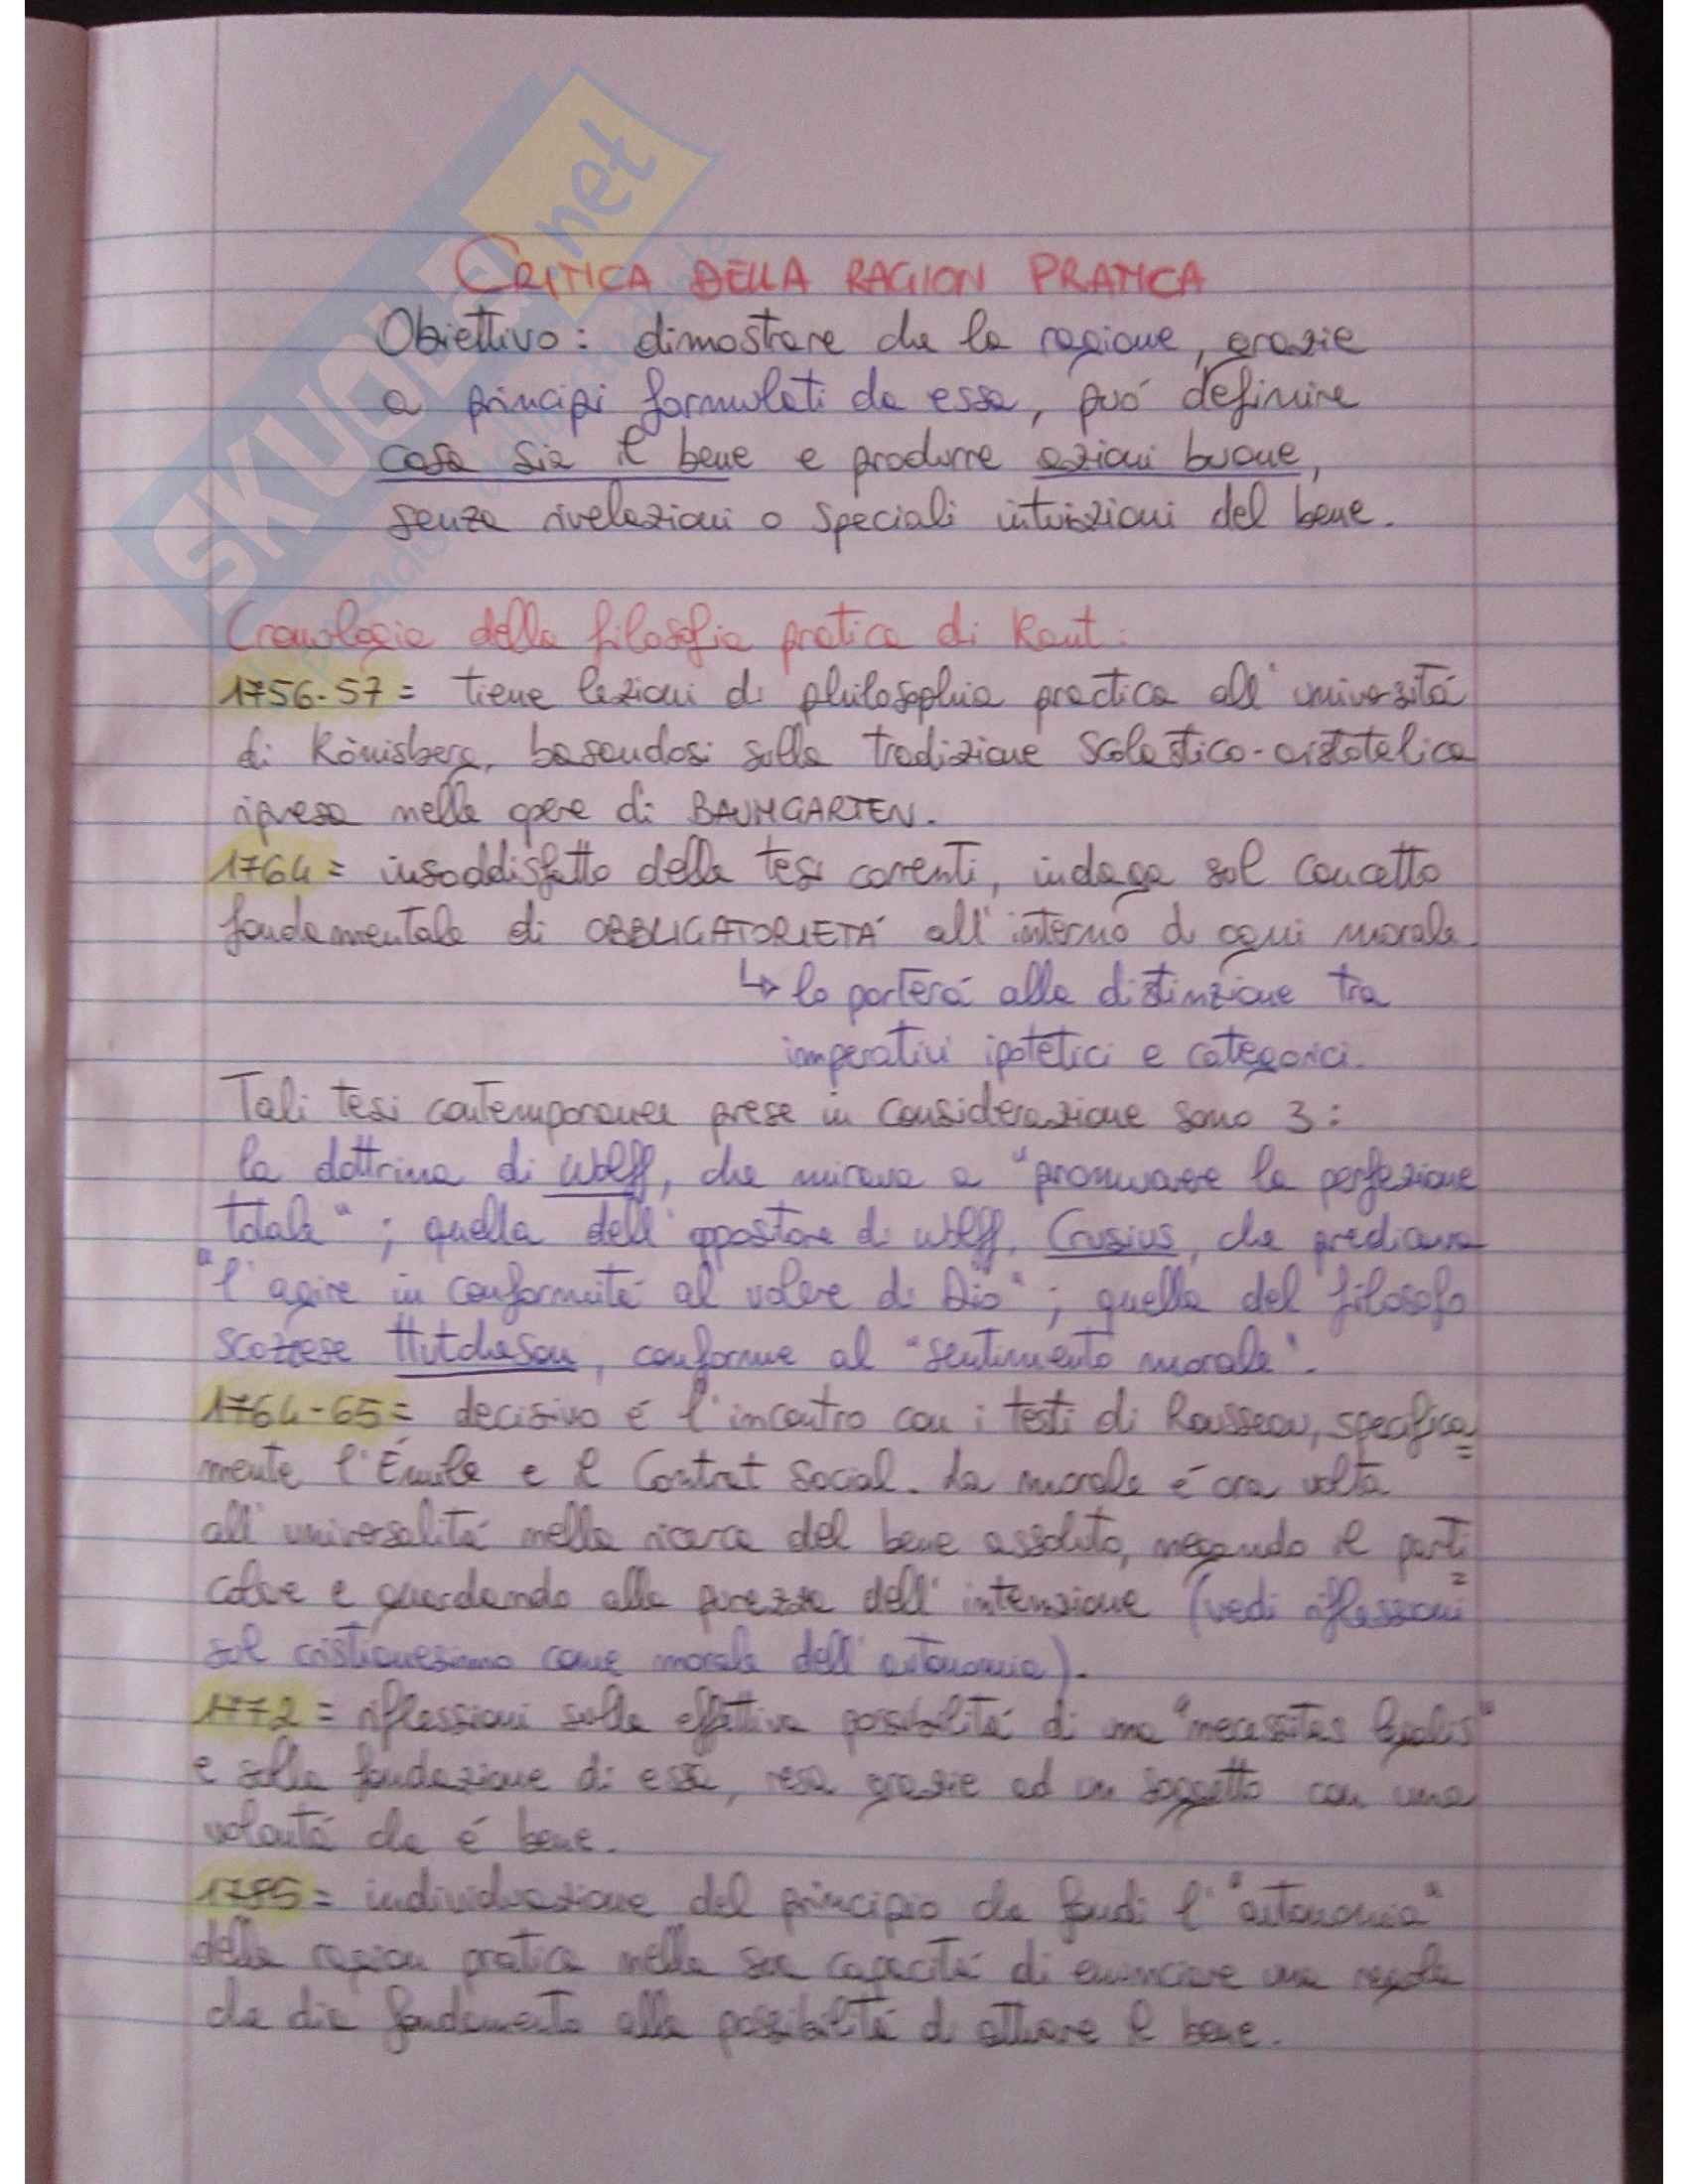 SKUOLA.net
CRITICA DELLA RAGION PRATICA
Obiettivo: dimostrare che la ragione, grazie
a principi formulati da essa, può definire
cosa sia il bene e produrre azioni buone,
senza rivelazioni o speciali intuizioni del bene.
Cronologia della filosofia pratica di Kant:
1756-57 = tiene lezioni di philosophia practica all'università
di Könisberg, basandosi sulla tradizione scolastico-aristotelica
ripresa nelle opere di BAUMGARTEN.
1764 = insoddisfatto delle tesi correnti, indaga sul concetto
fondamentale di OBBLIGATORIETÀ all'interno di ogni morale
↳ lo porterà alla distinzione tra
imperativi ipotetici e categorici.
Tali tesi contemporanee prese in considerazione sono 3:
la dottrina di Wolff, che mirava a "promuovere la perfezione
totale"; quella dell'oppositore di Wolff, Crusius, che predicava
"l'agire in conformità al volere di Dio"; quella del filosofo
scozzese Hutcheson, conforme al "sentimento morale".
1764-65 = decisivo é l'incontro con i testi di Rousseau, specifica=
mente l'Émile e il Contrat Social. La morale é ora volta
all'universalità nella ricerca del bene assoluto, negando il parti=
colare e guardando alla purezza dell'intenzione (vedi riflessioni
sul cristianesimo come morale dell'autonomia).
1772 = riflessioni sulla effettiva possibilità di una "necessitas legalis"
e sulla fondazione di essa, resa grazie ad un soggetto con una
volontà che é bene.
1785 = individuazione del principio che fondi l'"autonomia"
della ragion pratica nella sua capacità di enunciare una regola
che dia fondamento alla possibilità di attuare il bene.